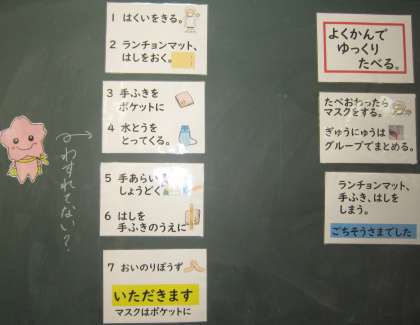 1 はくいをきる。
2 ランチョンマット、
はしをおく。
3 手ふきを
ポケットに
4 水とうを
とってくる。
5 手あらい
しょうどく
6 はしを
手ふきのうえに
7 おいのりぽうず
いただきます
マスクはポケットに
わすれてない?
よくかんで
ゆっくり
たべる。
たべおわったら
マスクをする。
ぎゅうにゅうは
グループでまとめる。
ランチョンマット、
手ふき、はしを
しまう。
ごちそうさまでした